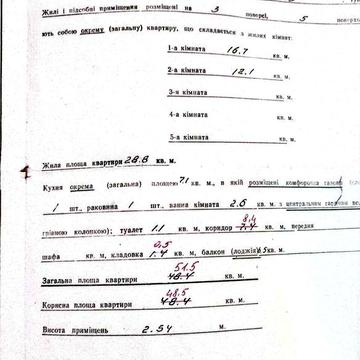 Жилі і підсобні приміщення розміщені на 3 поверсі, 5 поверхо
ють собою окрему (загальну) квартиру, що складається з жилих кімнат:
1-а кімната 16.7 кв. м.
2-а кімната 12.1 кв. м.
3-я кімната кв. м.
4-а кімната кв. м.
5-а кімната кв. м.
Жила площа квартири 28.8 кв. м.
Кухня окрема (загальна) площею 7.1 кв. м., в якій розміщені комфорочна газова
1 шт., раковина 1 шт., ванна кімната 2.6 кв. м з центральним гарячим
8,4
грівною колонкою); туалет 1.1 кв. м, коридор 7.4 кв. м, передня
0,5
шафа кв. м, кладовка 1.4 кв. м, балкон (лоджія) кв. м.
51.5
Загальна площа квартири 49.4 кв. м.
48.5
Корисна площа квартири 49.4 кв. м.
Висота приміщень 2.54 м.